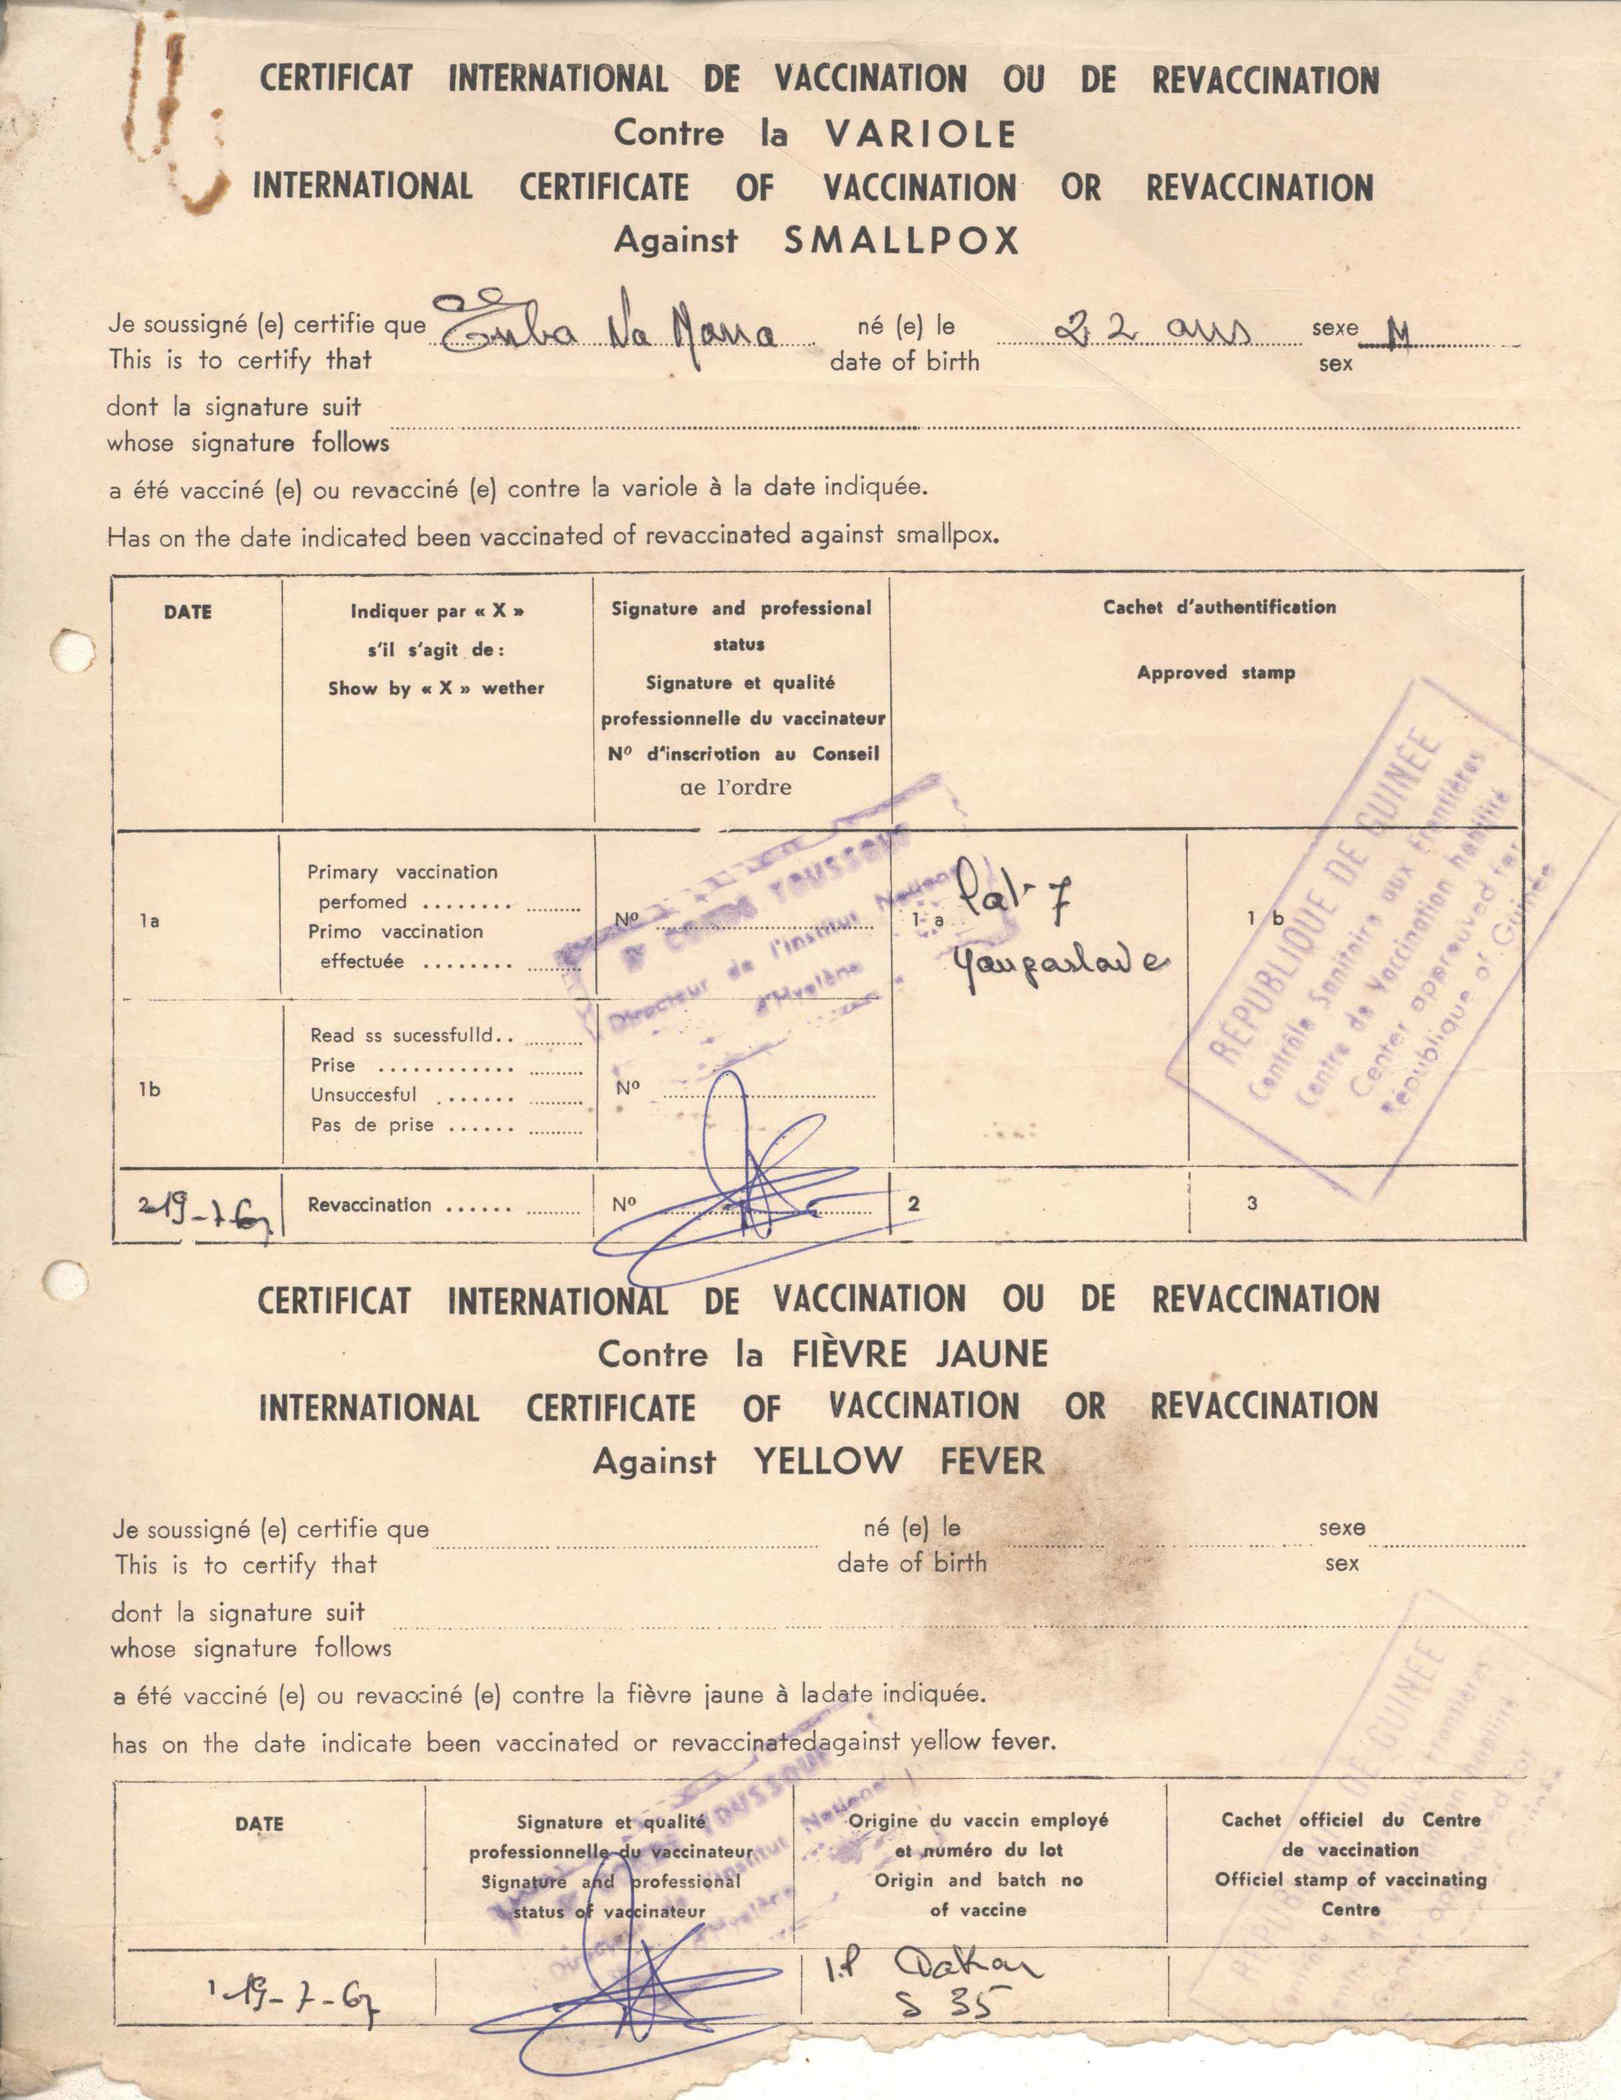 CERTIFICAT INTERNATIONAL DE VACCINATION OU DE REVACCINATION
Contre la VARIOLE
INTERNATIONAL CERTIFICATE OF VACCINATION OR REVACCINATION
Against SMALLPOX
Je soussigné (e) certifie que Na né (e) le 22 ans sexe M
This is to certify that date of birth sex
dont la signature suit
whose signature follows
a été vacciné (e) ou revacciné (e) contre la variole à la date indiquée.
Has on the date indicated been vaccinated of revaccinated against smallpox.
DATE
Indiquer par « X »
s'il s'agit de :
Show by « X » wether
Signature and professional
status
Signature et qualité
professionnelle du vaccinateur
Nº d'inscription au Conseil
de l'ordre
Cachet d'authentification
Approved stamp
1a
Primary vaccination
perfomed ........
Primo vaccination
effectuée ........
Nº
YOUSSOUF
Directeur de l'Institut National
d'Hygiène
1 a
7
1 b
RÉPUBLIQUE DE GUINÉE
Contrôle Sanitaire aux Frontières
Centre de Vaccination habilité
Center approuved for
République of Guinée
1b
Read ss sucessfulld..
Prise ............
Unsuccesful .......
Pas de prise ......
Nº
19-7-67
Revaccination ......
Nº
2
3
CERTIFICAT INTERNATIONAL DE VACCINATION OU DE REVACCINATION
Contre la FIÈVRE JAUNE
INTERNATIONAL CERTIFICATE OF VACCINATION OR REVACCINATION
Against YELLOW FEVER
Je soussigné (e) certifie que né (e) le sexe
This is to certify that date of birth sex
dont la signature suit
whose signature follows
a été vacciné (e) ou revacciné (e) contre la fièvre jaune à ladate indiquée.
has on the date indicate been vaccinated or revaccinatedagainst yellow fever.
DATE
Signature et qualité
professionnelle du vaccinateur
Signature and professional
status of vaccinateur
YOUSSOUF
Origine du vaccin employé
et numéro du lot
Origin and batch no
of vaccine
Cachet officiel du Centre
de vaccination
Officiel stamp of vaccinating
Centre
DE GUINÉE
19-7-67
I.P Dakar
S 35